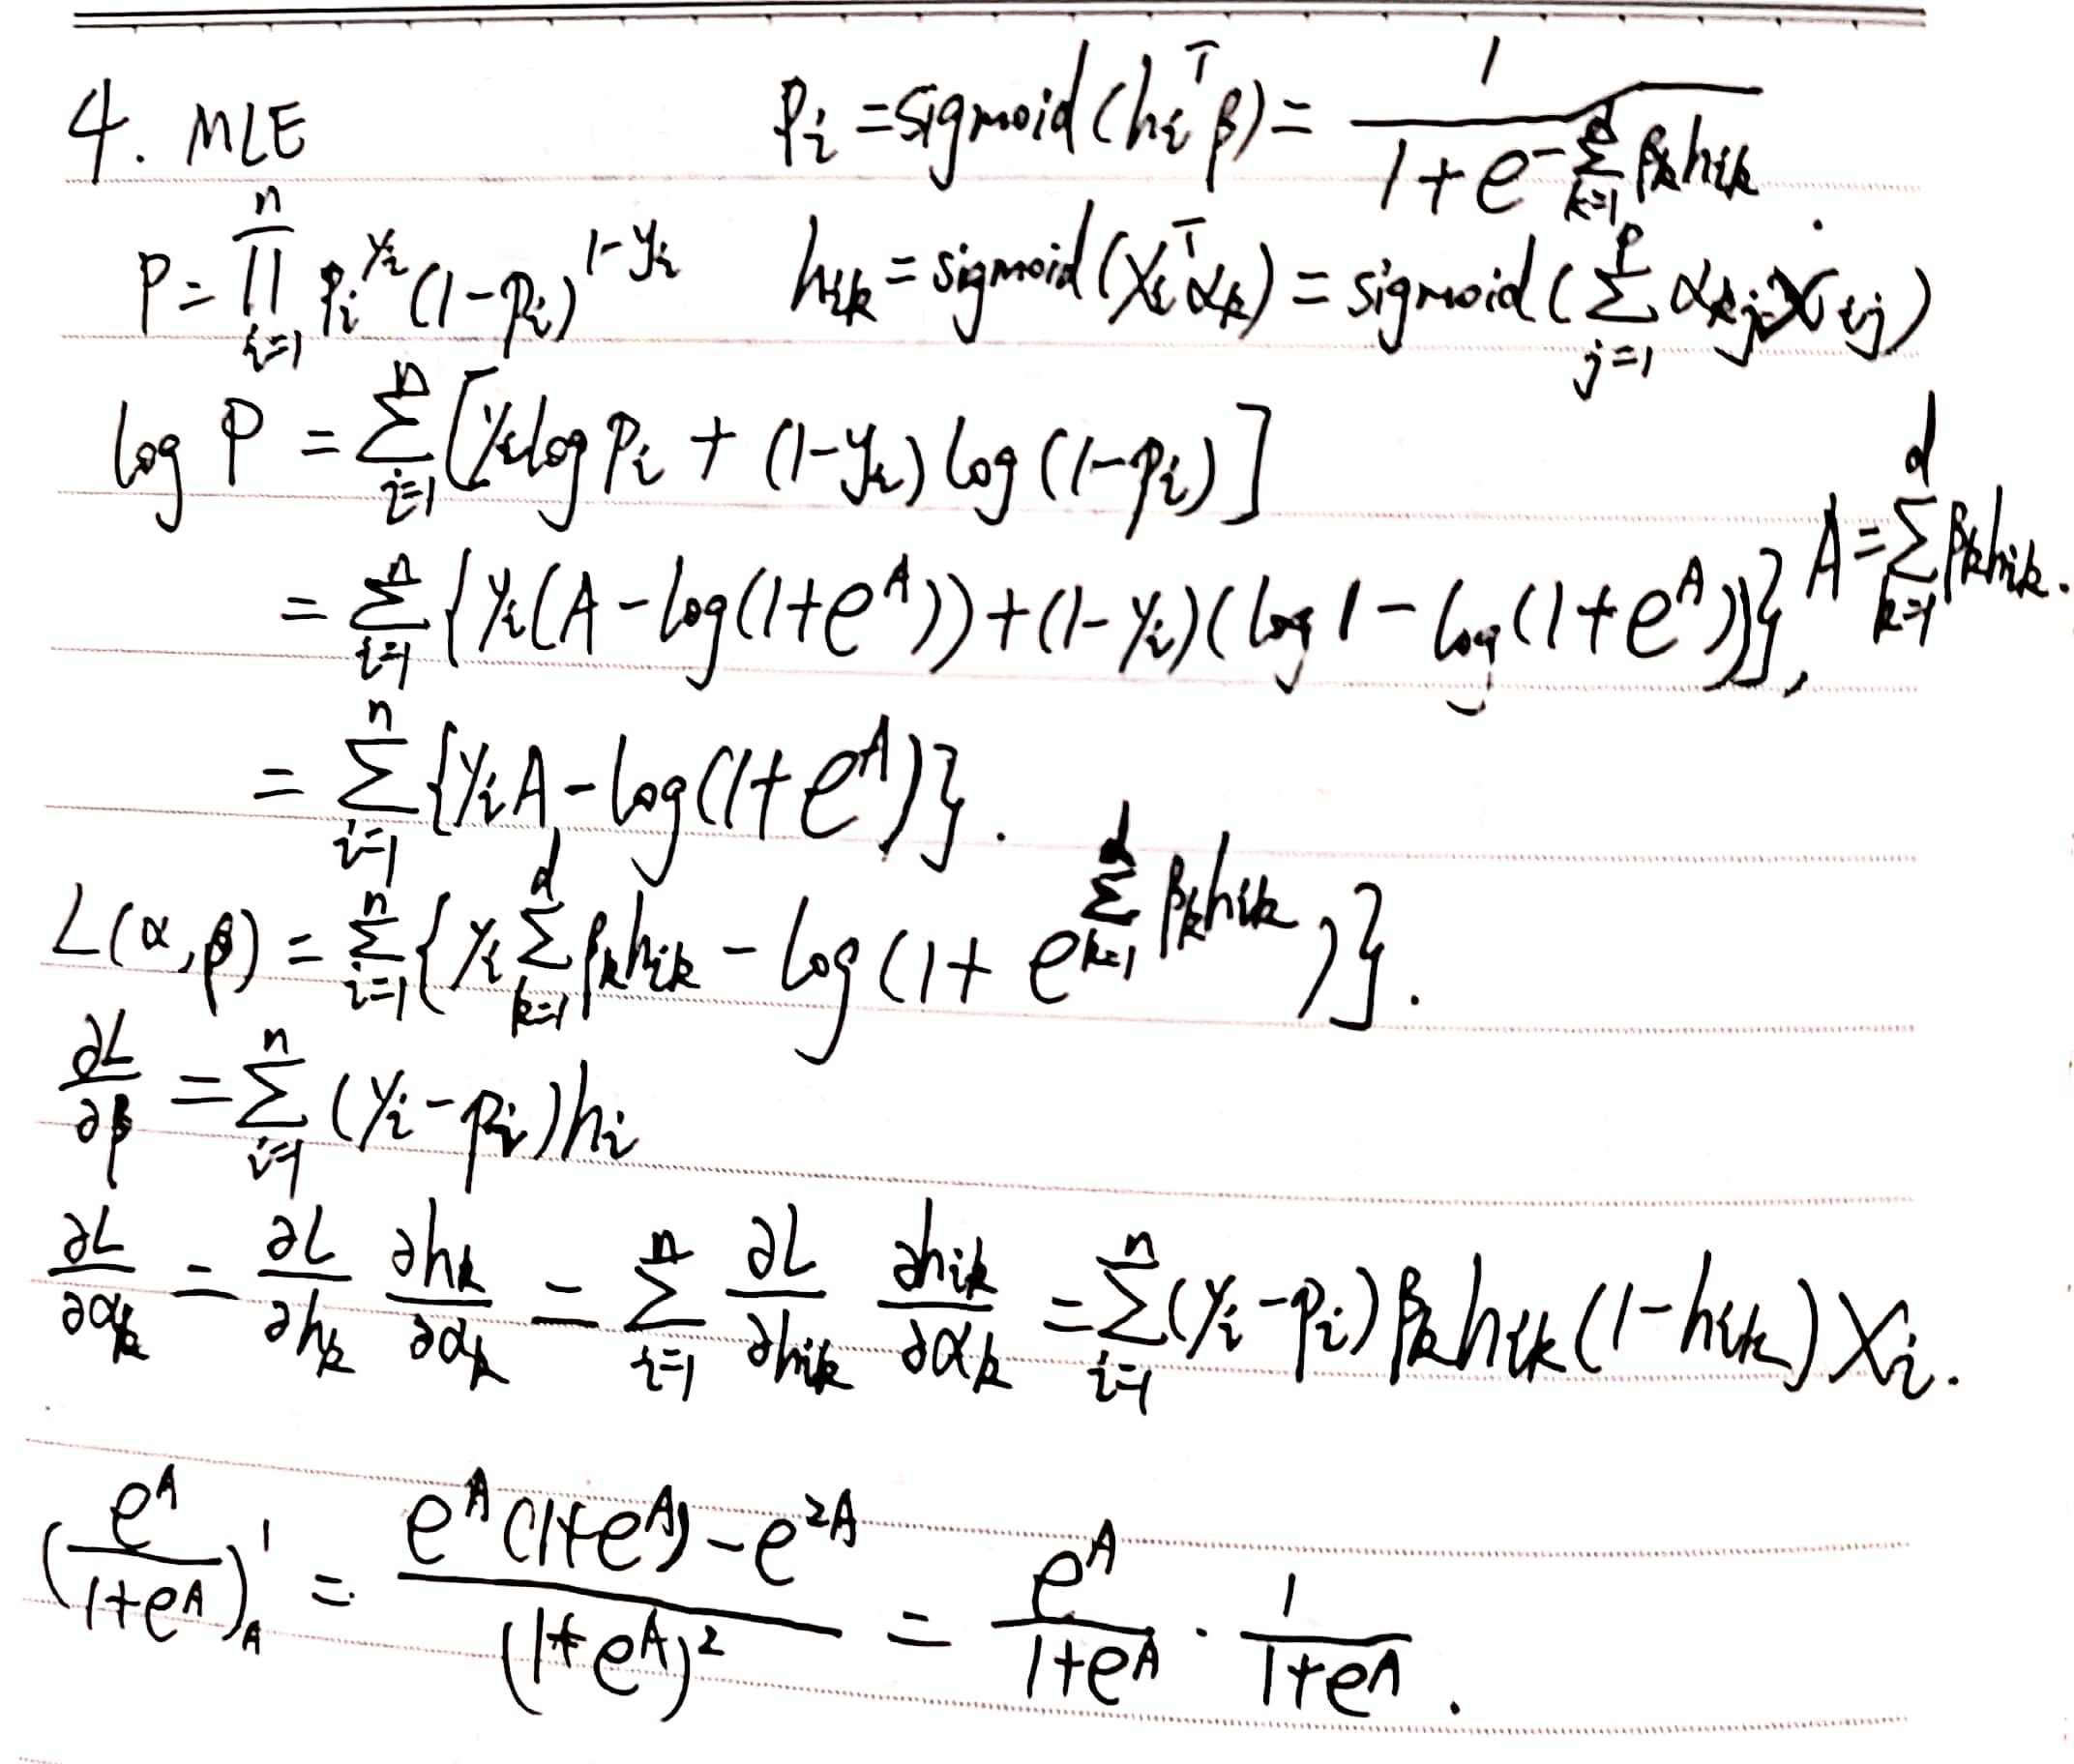 4. MLE   p_i = sigmoid(h_i^T β) = 1 / (1 + e^{-Σ_{k=1}^{d} β_k h_{ik}}).
P = ∏_{i=1}^{n} p_i^{y_i} (1-p_i)^{1-y_i}   h_{ik} = sigmoid(X_i^T α_k) = sigmoid(Σ_{j=1}^{p} α_{kj} X_{ij})
log P = Σ_{i=1}^{n} [y_i log p_i + (1-y_i) log(1-p_i)]
= Σ_{i=1}^{n} {y_i(A - log(1+e^A)) + (1-y_i)(log 1 - log(1+e^A))}, A = Σ_{k=1}^{d} β_k h_{ik}.
= Σ_{i=1}^{n} {y_i A - log(1+e^A)}.
L(α,β) = Σ_{i=1}^{n} {y_i Σ_{k=1}^{d} β_k h_{ik} - log(1+e^{Σ_{k=1}^{d} β_k h_{ik}})}.
∂L/∂β = Σ_{i=1}^{n} (y_i - p_i) h_i
∂L/∂α_k = ∂L/∂h_k ∂h_k/∂α_k = Σ_{i=1}^{n} ∂L/∂h_{ik} ∂h_{ik}/∂α_k = Σ_{i=1}^{n} (y_i - p_i) β_k h_{ik} (1-h_{ik}) X_i.
(e^A / (1+e^A))'_A = (e^A(1+e^A) - e^{2A}) / (1+e^A)^2 = e^A / (1+e^A) · 1 / (1+e^A).